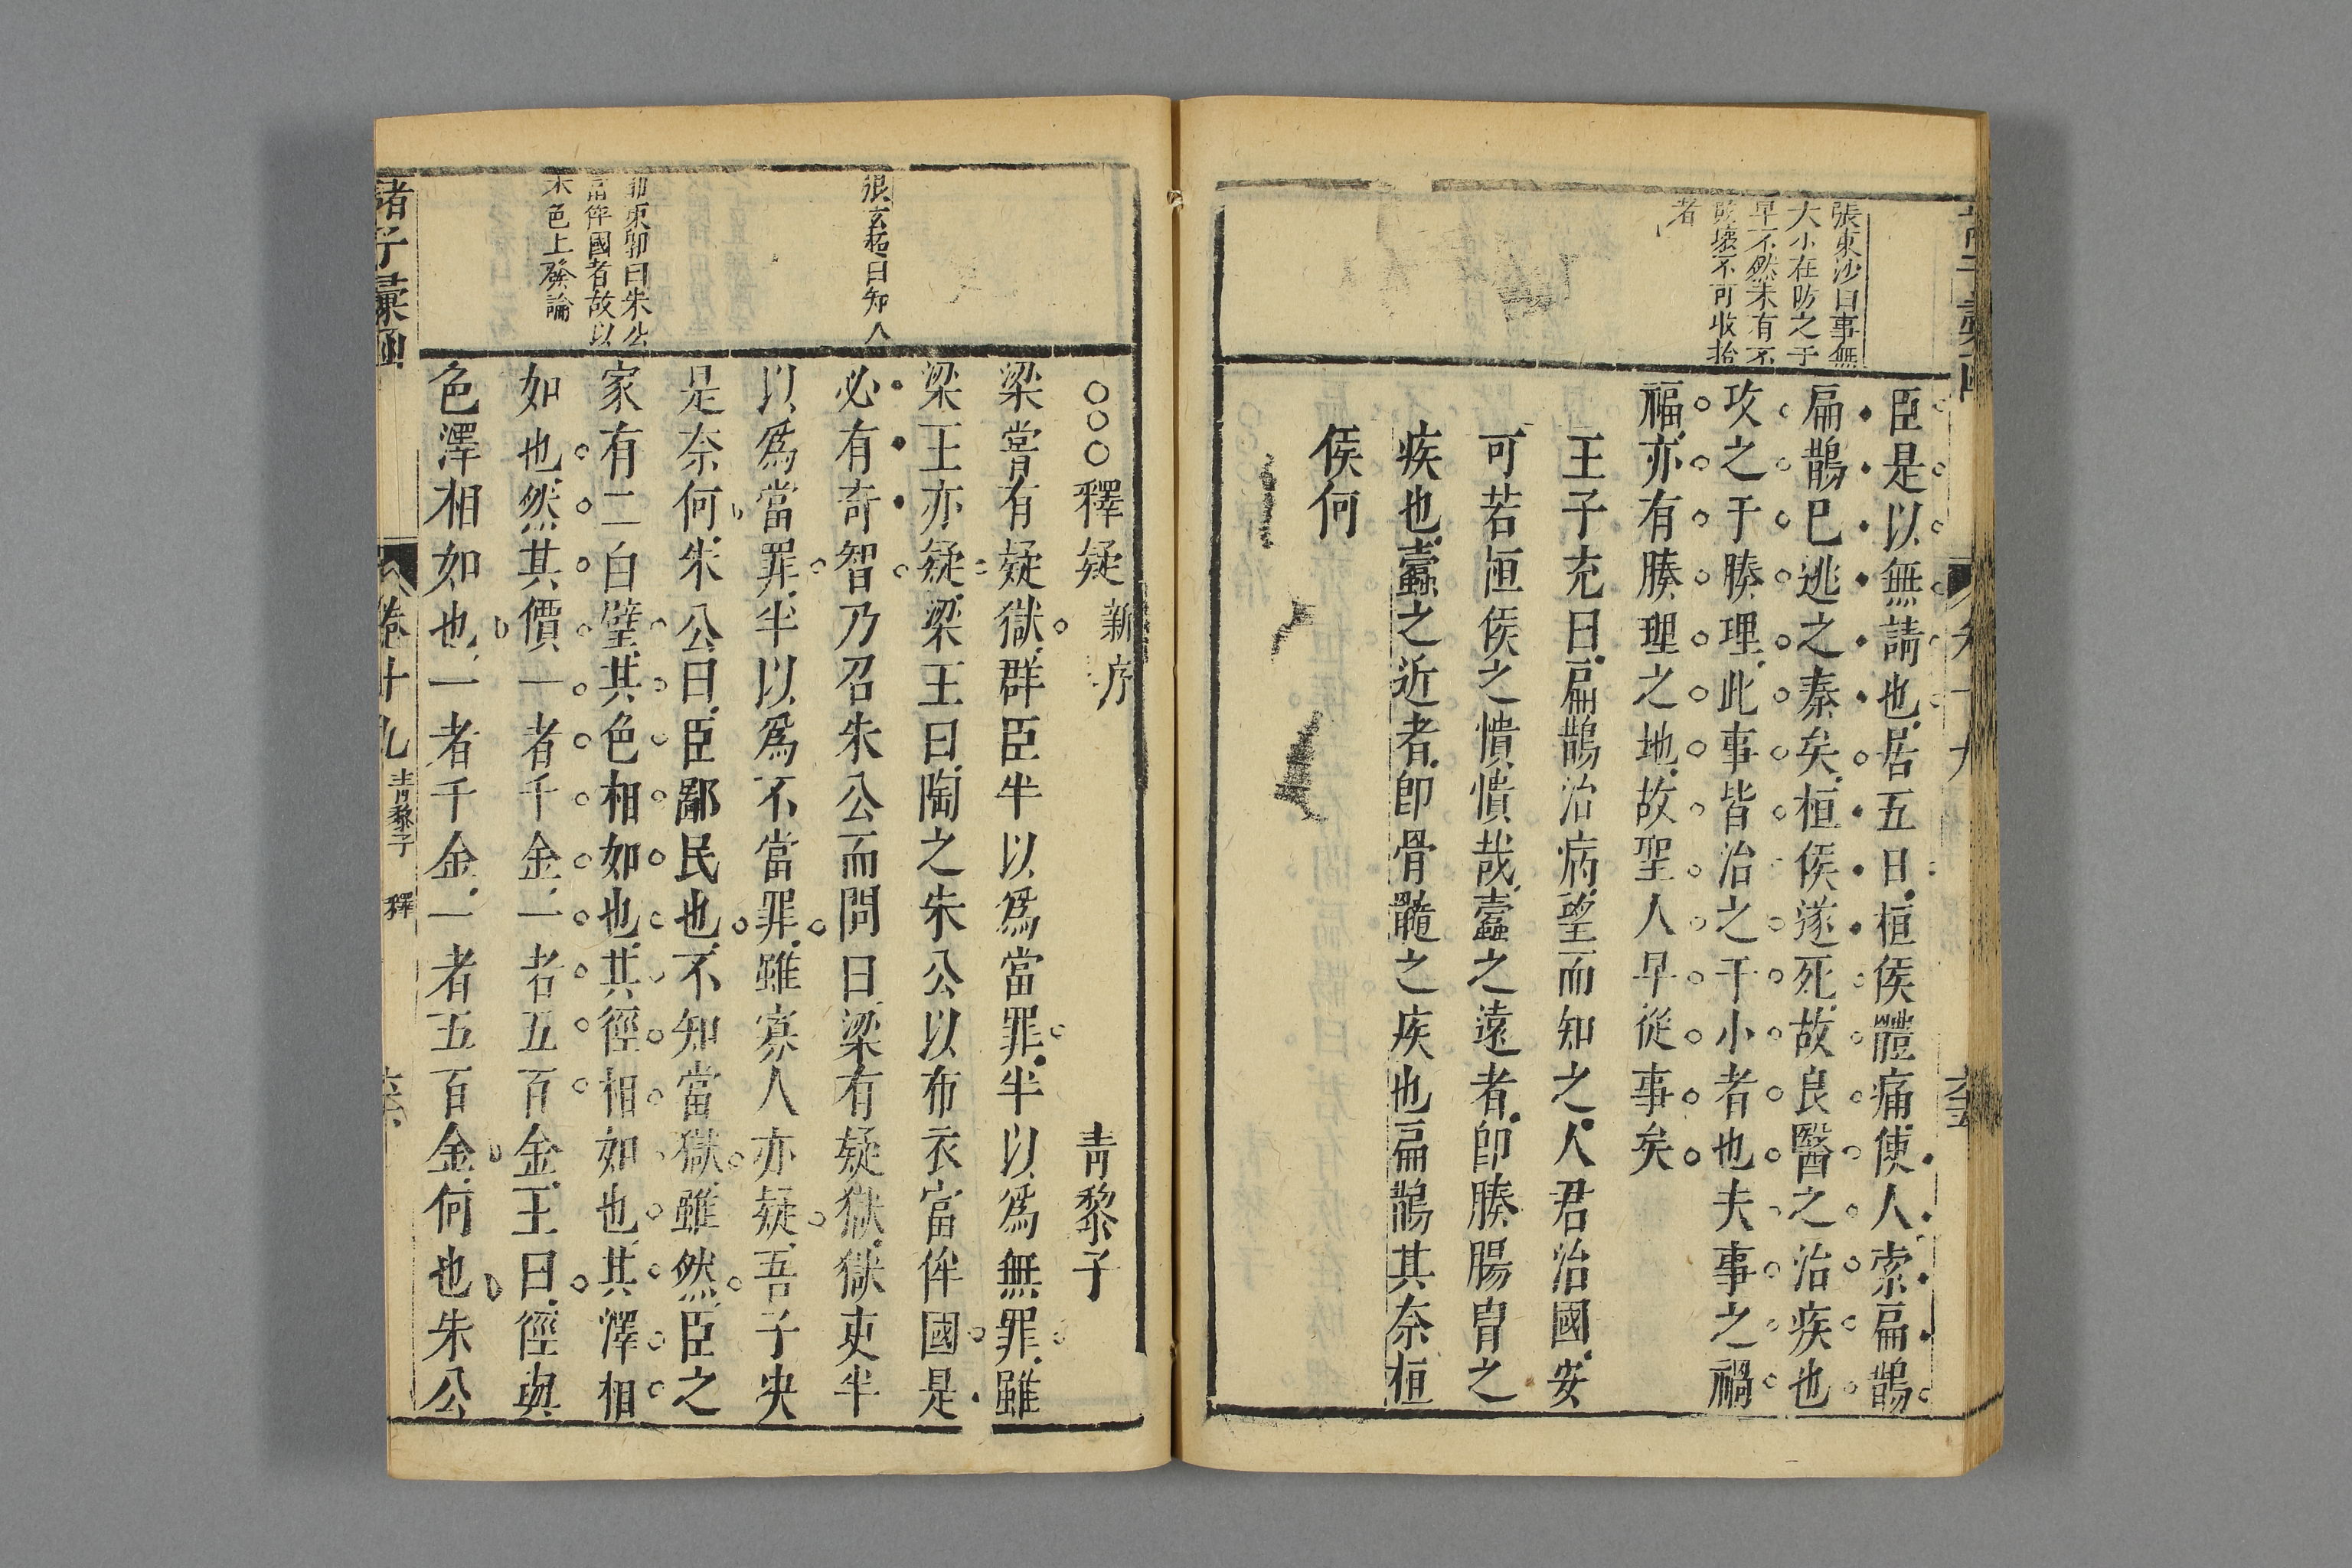 張東沙曰事無
大小在昉之于
早不然未有不
壞不可收拾
者
臣是以無請也居五日桓侯體痛使人索扁鵲
扁鵲已逃之秦矣桓侯遂死故良醫之治疾也
攻之于腠理此事皆治之于小者也夫事之禍
福亦有腠理之地故聖人早從事矣
王子充曰扁鵲治病望而知之人君治國安
可若桓侯之憒憒哉蠹之遠者卽腠腸胃之
疾也蠹之近者卽骨髓之疾也扁鵲其奈桓
侯何
張玄超曰知人
東郭曰朱公
富侔國者故以
朱色上發論
○○○釋疑 新序 青黎子
梁嘗有疑獄群臣半以爲當罪半以爲無罪雖
梁王亦疑梁王曰陶之朱公以布衣富侔國是
必有奇智乃召朱公而問曰梁有疑獄獄吏半
以爲當罪半以爲不當罪雖寡人亦疑吾子央
是奈何朱公曰臣鄙民也不知當獄雖然臣之
家有二白璧其色相如也其徑相如也其澤相
如也然其價一者千金一者五百金王曰徑與
色澤相如也一者千金一者五百金何也朱公
諸子彙函 卷十九 青黎子 釋